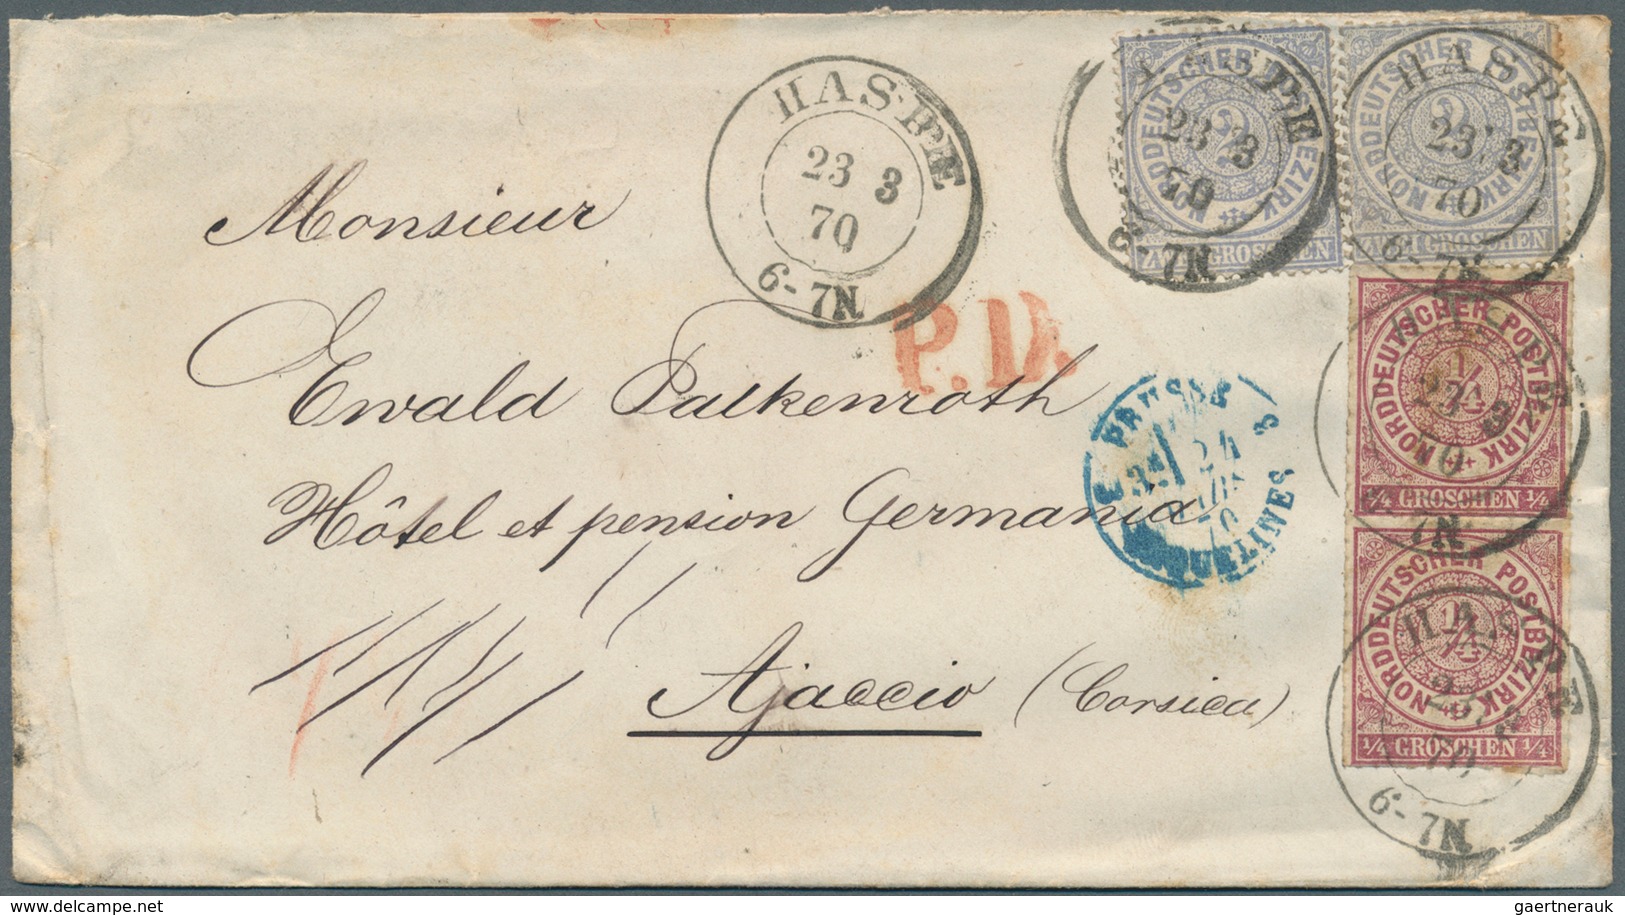 HASPE
23 3
70
6-7N
HASPE
23 3
70
6-7N
NORDDEUTSCHER POSTBEZIRK
2
ZWEI GROSCHEN
HASPE
23 3
70
6-7N
NORDDEUTSCHER POSTBEZIRK
2
ZWEI GROSCHEN
Monsieur
P.D.
NORDDEUTSCHER POSTBEZIRK
1/4
1/4 GROSCHEN 1/4
23 3
70
7N
Ewald Falkenroth
PRUSSE
3
24
70
3
Hôtel et pension Germania
NORDDEUTSCHER POSTBEZIRK
1/4
1/4 GROSCHEN 1/4
HASPE
23 3
70
6-7N
Ajaccio (Corsica)
www.delcampe.net
gaertnerauk